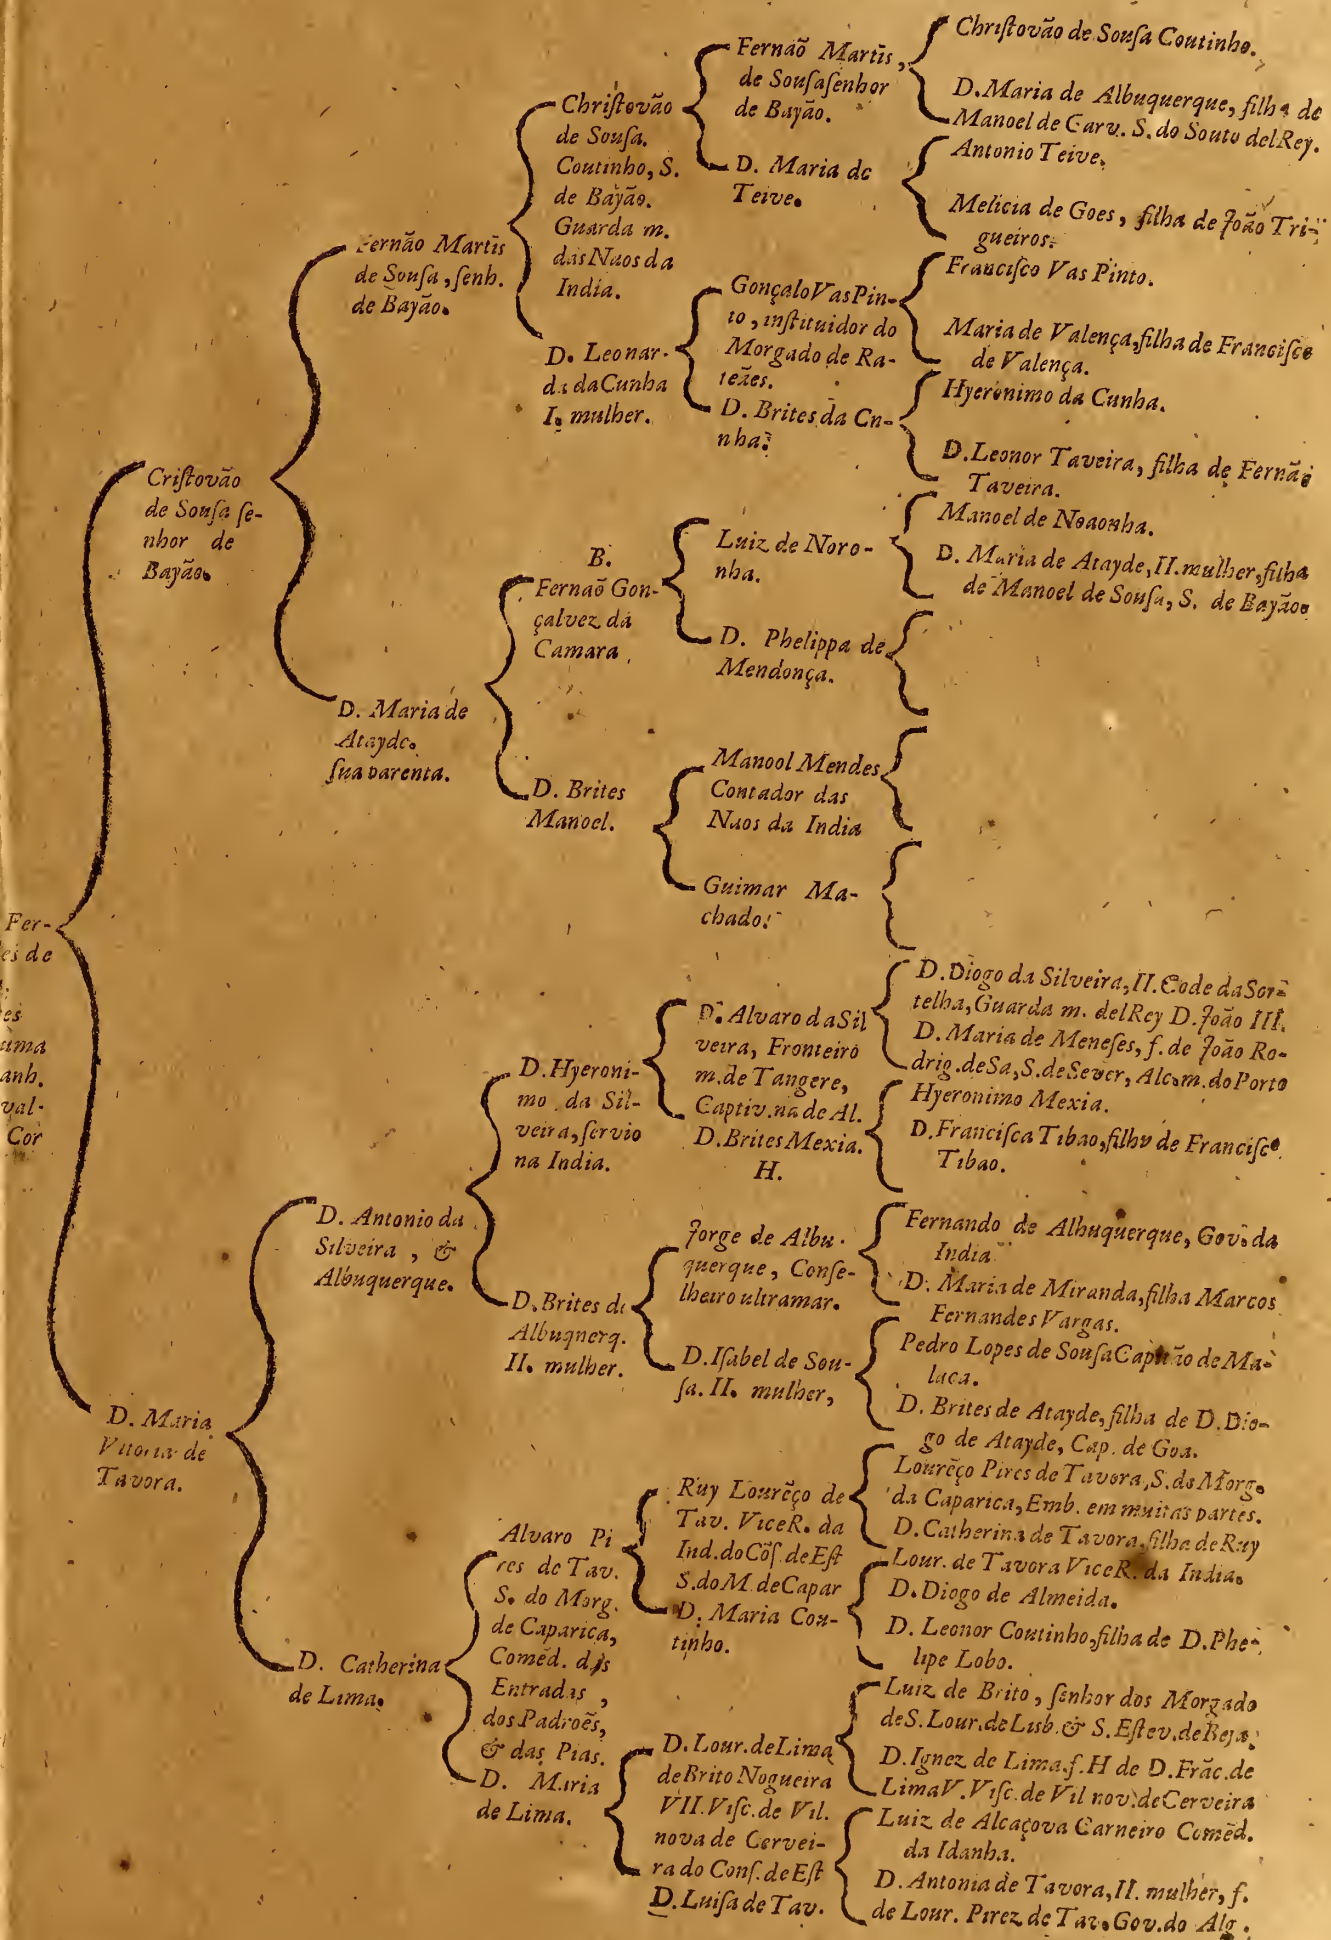 Fer-
es de
es
ama
anh.
val-
Cor
Criſtovão
de Souſa ſe-
nhor de
Bayão.
D. Maria
Vitoria de
Tavora.
Fernão Martis
de Souſa, ſenh.
de Bayão.
D. Maria de
Atayde.
ſua parenta.
D. Antonio da
Silveira, &
Albuquerque.
D. Catherina
de Lima.
Chriſtovão
de Souſa.
Coutinho, S.
de Bayão.
Guarda m.
das Naos da
India.
D. Leonar-
da da Cunha
I. mulher.
B.
Fernaõ Gon-
çalvez da
Camara
D. Brites
Manoel.
D. Hyeroni-
mo da Sil-
veira, ſervio
na India.
D. Brites de
Albuqnerq.
II. mulher.
Alvaro Pi
res de Tav.
S. do Morg.
de Caparica,
Coméd. das
Entradas,
dos Padroẽs,
& das Pias.
D. Maria
de Lima.
Fernaõ Martis,
de Souſa ſenhor
de Bayão.
D. Maria de
Teive.
Gonçalo Vas Pin-
to, inſtituidor do
Morgado de Ra-
teẽes.
D. Brites da Cn-
nha.
Luiz de Noro-
nha.
D. Phelippa de
Mendonça.
Manool Mendes
Contador das
Naos da India
Guimar Ma-
chado.
D. Alvaro da Sil
veira, Fronteiro
m. de Tangere,
Captiv. na de Al.
D. Brites Mexia.
H.
Jorge de Albu-
querque, Conſe-
lheiro ultramar.
D. Iſabel de Sou-
ſa. II. mulher,
Ruy Lourẽço de
Tav. Vice R. da
Ind. do Cõſ. de Eſt
S. do M. de Capar
D. Maria Cou-
tinho.
D. Lour. de Lima
de Brito Nogueira
VII. Viſc. de Vil.
nova de Cervei-
ra do Conſ. de Eſt
D. Luiſa de Tav.
Chriſtovão de Souſa Coutinho.
D. Maria de Albuquerque, filha de
Manoel de Carv. S. do Souto del Rey.
Antonio Teive.
Melicia de Goes, filha de João Tri-
gueiros.
Franciſco Vas Pinto.
Maria de Valença, filha de Franciſco
de Valença.
Hyeronimo da Cunha.
D. Leonor Taveira, filha de Fernão
Taveira.
Manoel de Noaonha.
D. Maria de Atayde, II. mulher, filha
de Manoel de Souſa, S. de Bayão.
D. Diogo da Silveira, II. Code da Sor-
telha, Guarda m. del Rey D. João III.
D. Maria de Meneſes, f. de João Ro-
drig. de Sa, S. de Sever, Alc. m. do Porto
Hyeronimo Mexia.
D. Franciſca Tibao, filha de Franciſco
Tibao.
Fernando de Albuquerque, Gov. da
India
D. Maria de Miranda, filha Marcos
Fernandes Vargas.
Pedro Lopes de Souſa Capitão de Ma-
laca.
D. Brites de Atayde, filha de D. Dio-
go de Atayde, Cap. de Goa.
Lourẽço Pires de Tavora, S. do Morg.
da Caparica, Emb. em muitas partes.
D. Catherina de Tavora, filha de Ruy
Lour. de Tavora Vice R. da India.
D. Diogo de Almeida.
D. Leonor Coutinho, filha de D. Phe-
lipe Lobo.
Luiz de Brito, ſenhor dos Morgado
de S. Lour. de Lisb. & S. Eſtev. de Beja.
D. Ignez de Lima, f. H de D. Frãc. de
Lima V. Viſc. de Vil nov. de Cerveira
Luiz de Alcaçova Carneiro Comẽd.
da Idanha.
D. Antonia de Tavora, II. mulher, f.
de Lour. Pirez de Tav. Gov. do Alg.